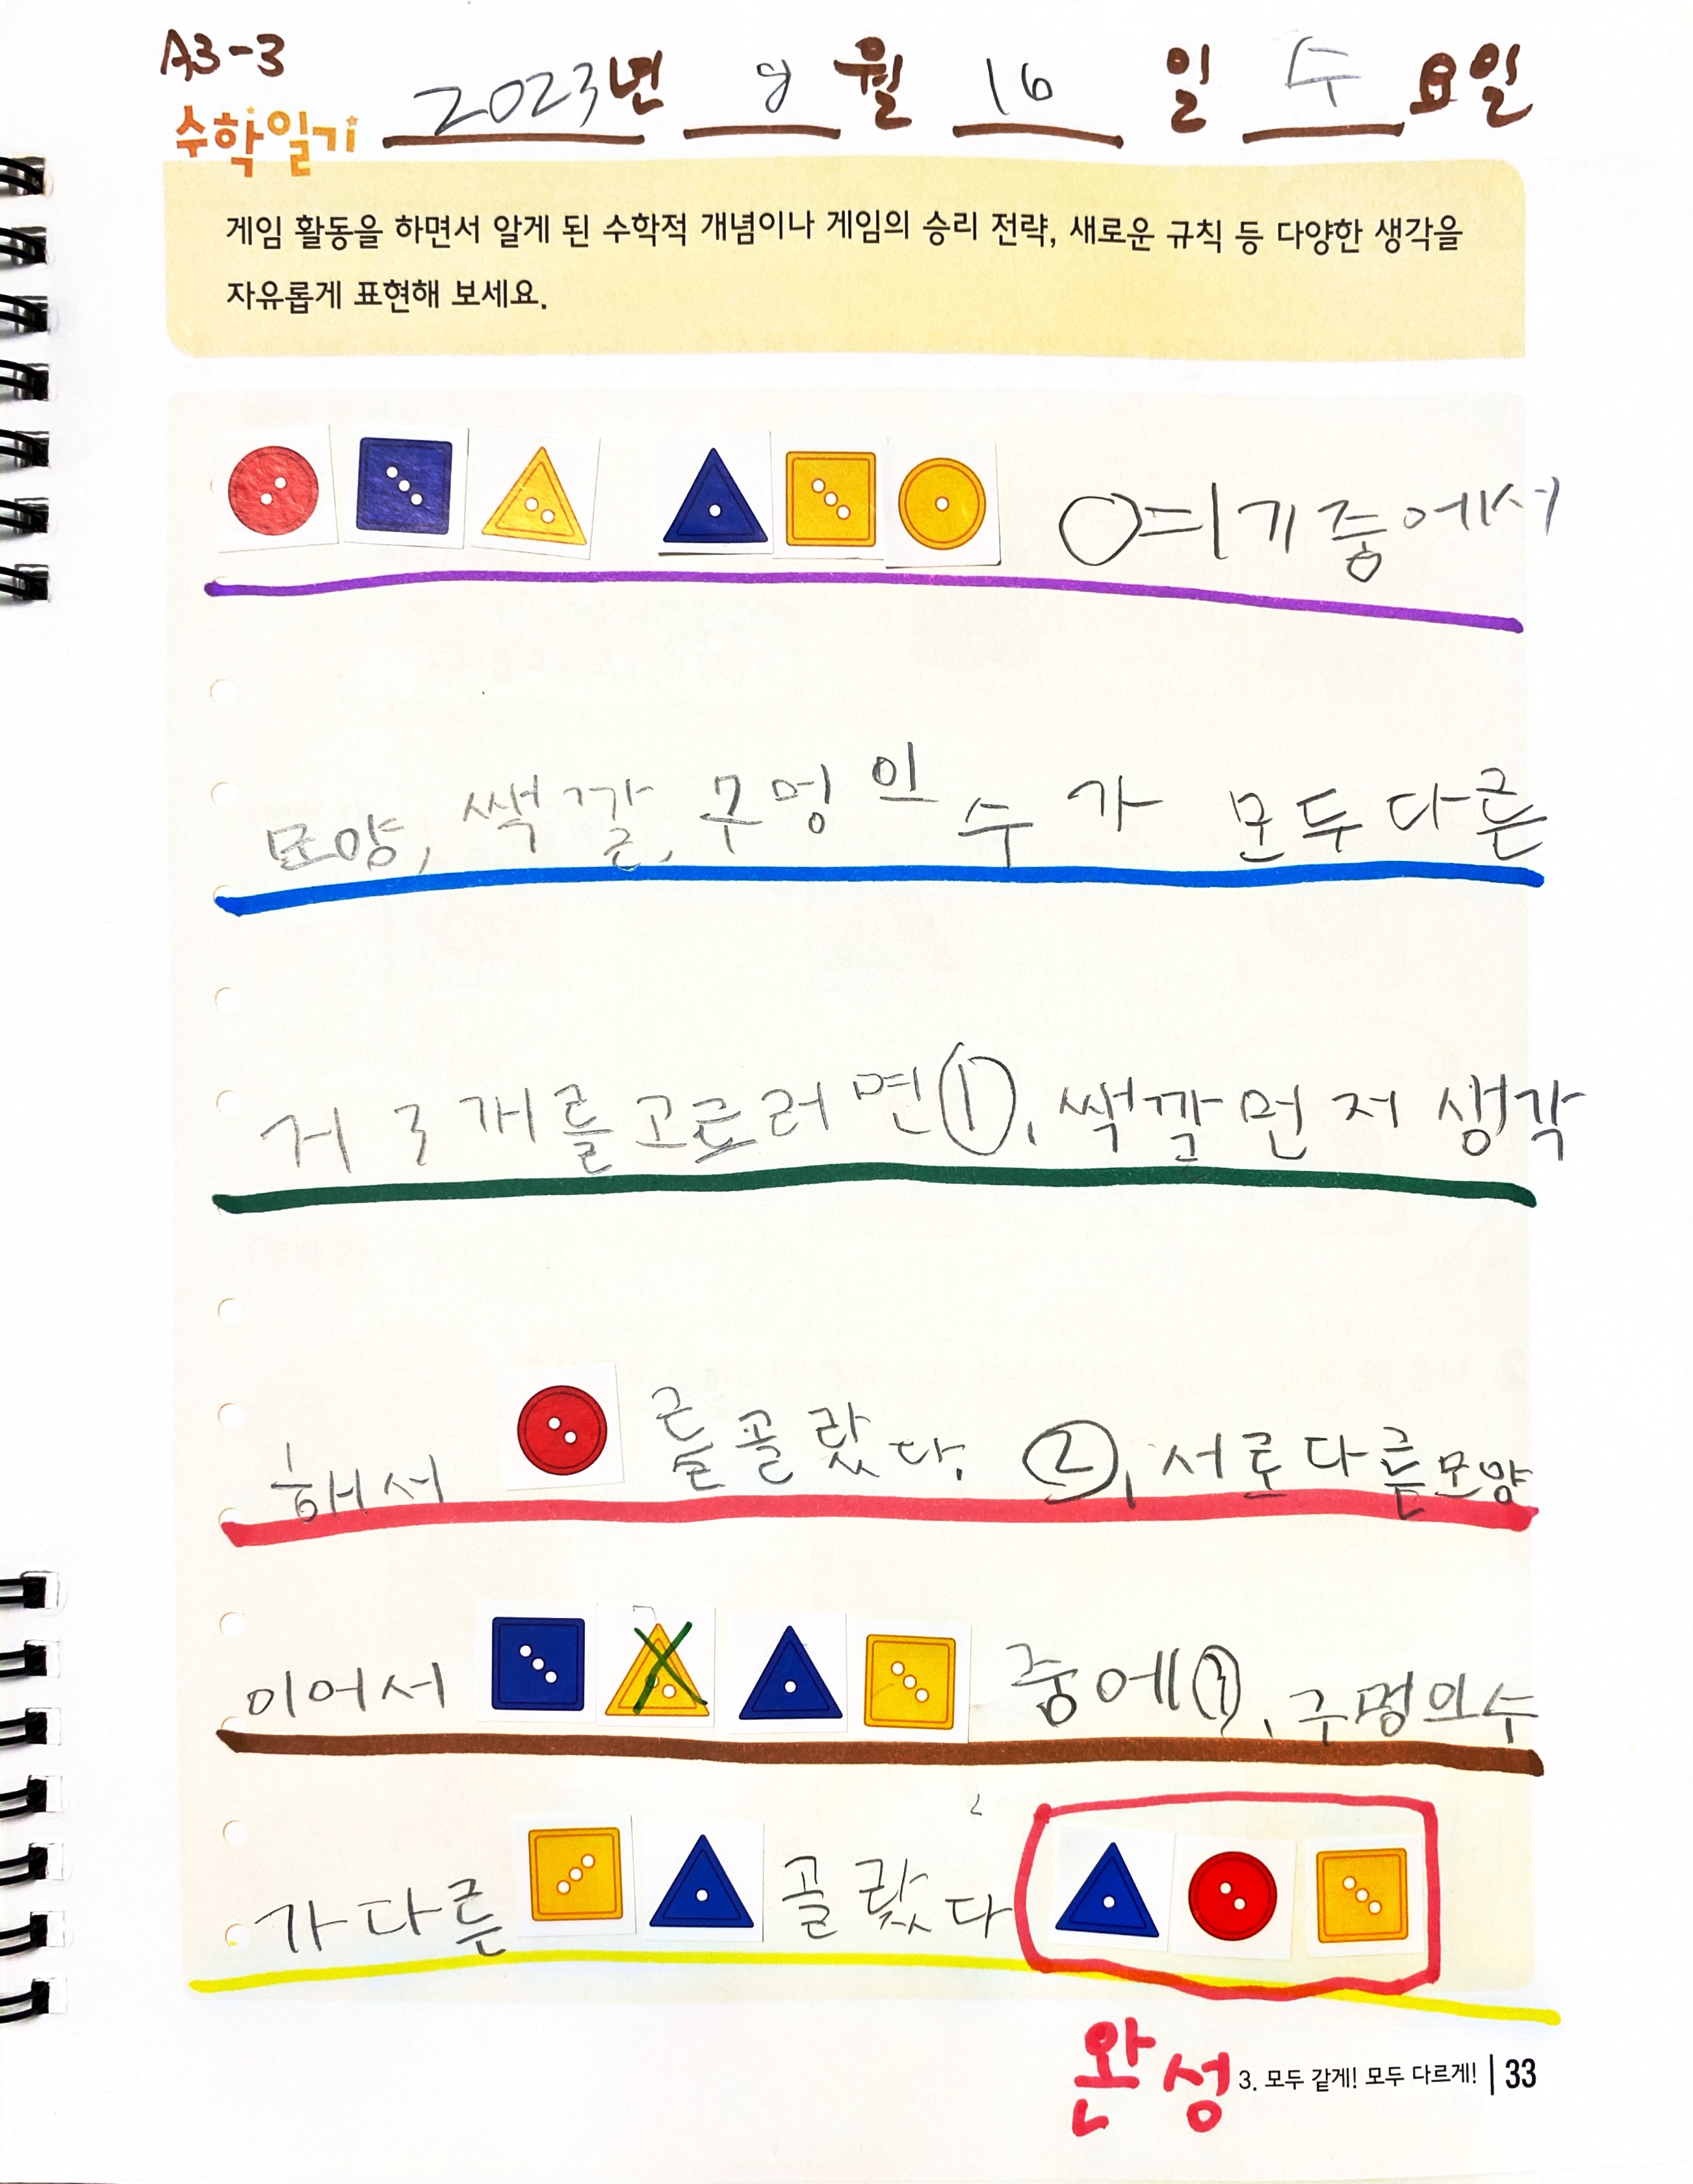 A3-3
수학일기 2023년 8월 16일 수요일
게임 활동을 하면서 알게 된 수학적 개념이나 게임의 승리 전략, 새로운 규칙 등 다양한 생각을
자유롭게 표현해 보세요.
여기중에서
모양, 쌕깔, 구멍의 수가 모두다른
거 3개를고르려면①, 쌕깔먼저생각
해서 를골랐다. ②, 서로다른모양
이어서 중에③, 구멍의수
가다른 골랐다
완성 3. 모두 같게! 모두 다르게! | 33